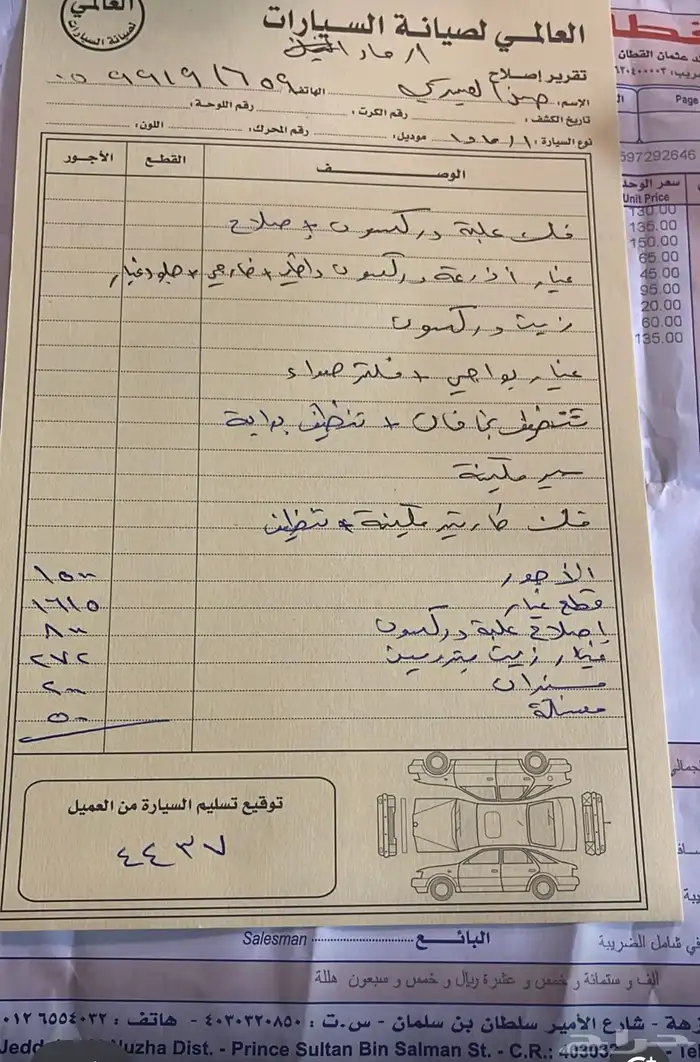 العالمي
لصيانة السيارات
العالمي لصيانة السيارات
تقرير إصلاح
الإسم: الهاتف: ٠٥٩٩١٩١٦٥٩
تاريخ الكشف: رقم الكرت: رقم اللوحة:
نوع السيارة: موديل: رقم المحرك: اللون:
الوصف القطع الأجور
فك علبة دركسون + إصلاح
غيار أذرعة دركسون داخلي + خارجي + جلود غيار
زيت دركسون
غيار بواجي + فلتر هواء
تنظيف بخاخات + تنظيف بوابة
سير مكينة
فك طارة مكينة + تنظيف
الأجور ١٥٠٠
قطع غيار ١٦١٥
إصلاح علبة دركسون ٨٠٠
غيار زيت بترومين ٢٧٢
مسندات ٢٠٠
مسنالة ٥٠
توقيع تسليم السيارة من العميل
٤٤٣٧
القطان
د عثمان القطان
Page
597292646
سعر الوحد
Unit Price
130.00
135.00
150.00
65.00
45.00
95.00
20.00
60.00
135.00
البائع Salesman
في شامل الضريبة
الف و ستمائة و خمس و عشرة ريال و خمس و سبعون هللة
هة - شارع الأمير سلطان بن سلمان - س.ت : ٤٠٣٠٣٢٠٨٥٠ - هاتف : ٠١٢٦٥٥٤٠٣٢
Jedd Nuzha Dist. - Prince Sultan Bin Salman St. - C.R.: 40303